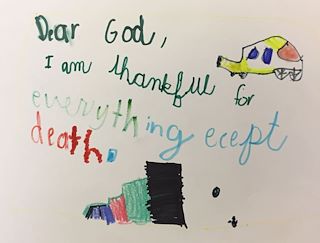 Dear God,
I am thankful for
everything ecept
death.